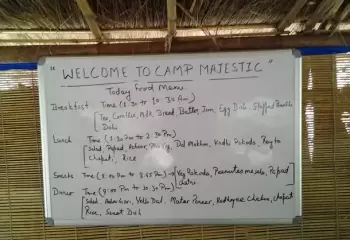 "WELCOME TO CAMP MAJESTIC"
Today Food Menu
Breakfast Time (8:30 to 10:30 Am)
[Tea, Coffee, Milk, Bread, Butter, Jam, Egg Dish, Stuffed
Dahi
Lunch Time (1:30 Pm to 2:30 Pm)
[Salad, Papad, Pickle, Dal Makhni, Kadhi Pakoda
Chapati, Rice
Snacks Time (8:00 Pm to 8:45 Pm) [Veg Pakoda, Peanutes masala, Papad]
Dinner Time (9:00 Pm to 10:30 Pm)
[Salad, Yellow Dal, Matar Paneer, Kadhayee Chicken, chapati
Rice, Sweet Dish